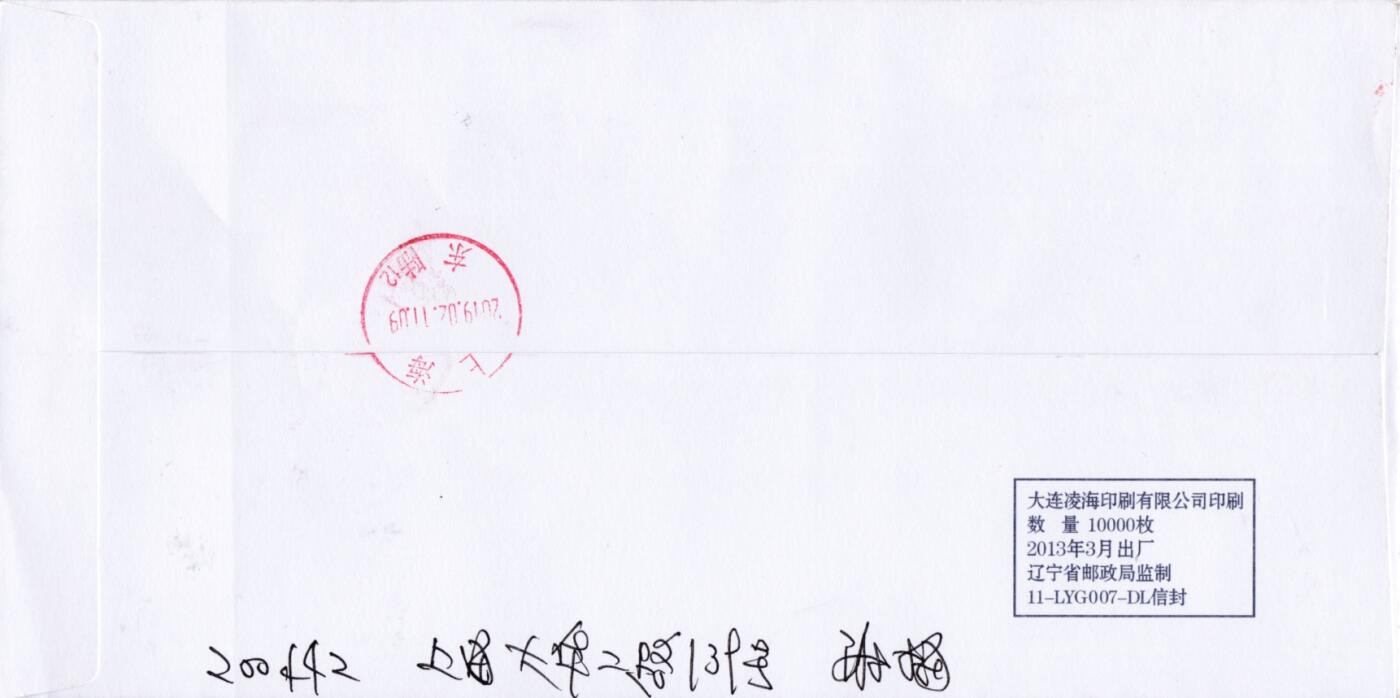 上海
2019.02.11.09
东 陆12
大连凌海印刷有限公司印刷
数 量 10000枚
2013年3月出厂
辽宁省邮政局监制
11-LYG007-DL信封
200442 上海